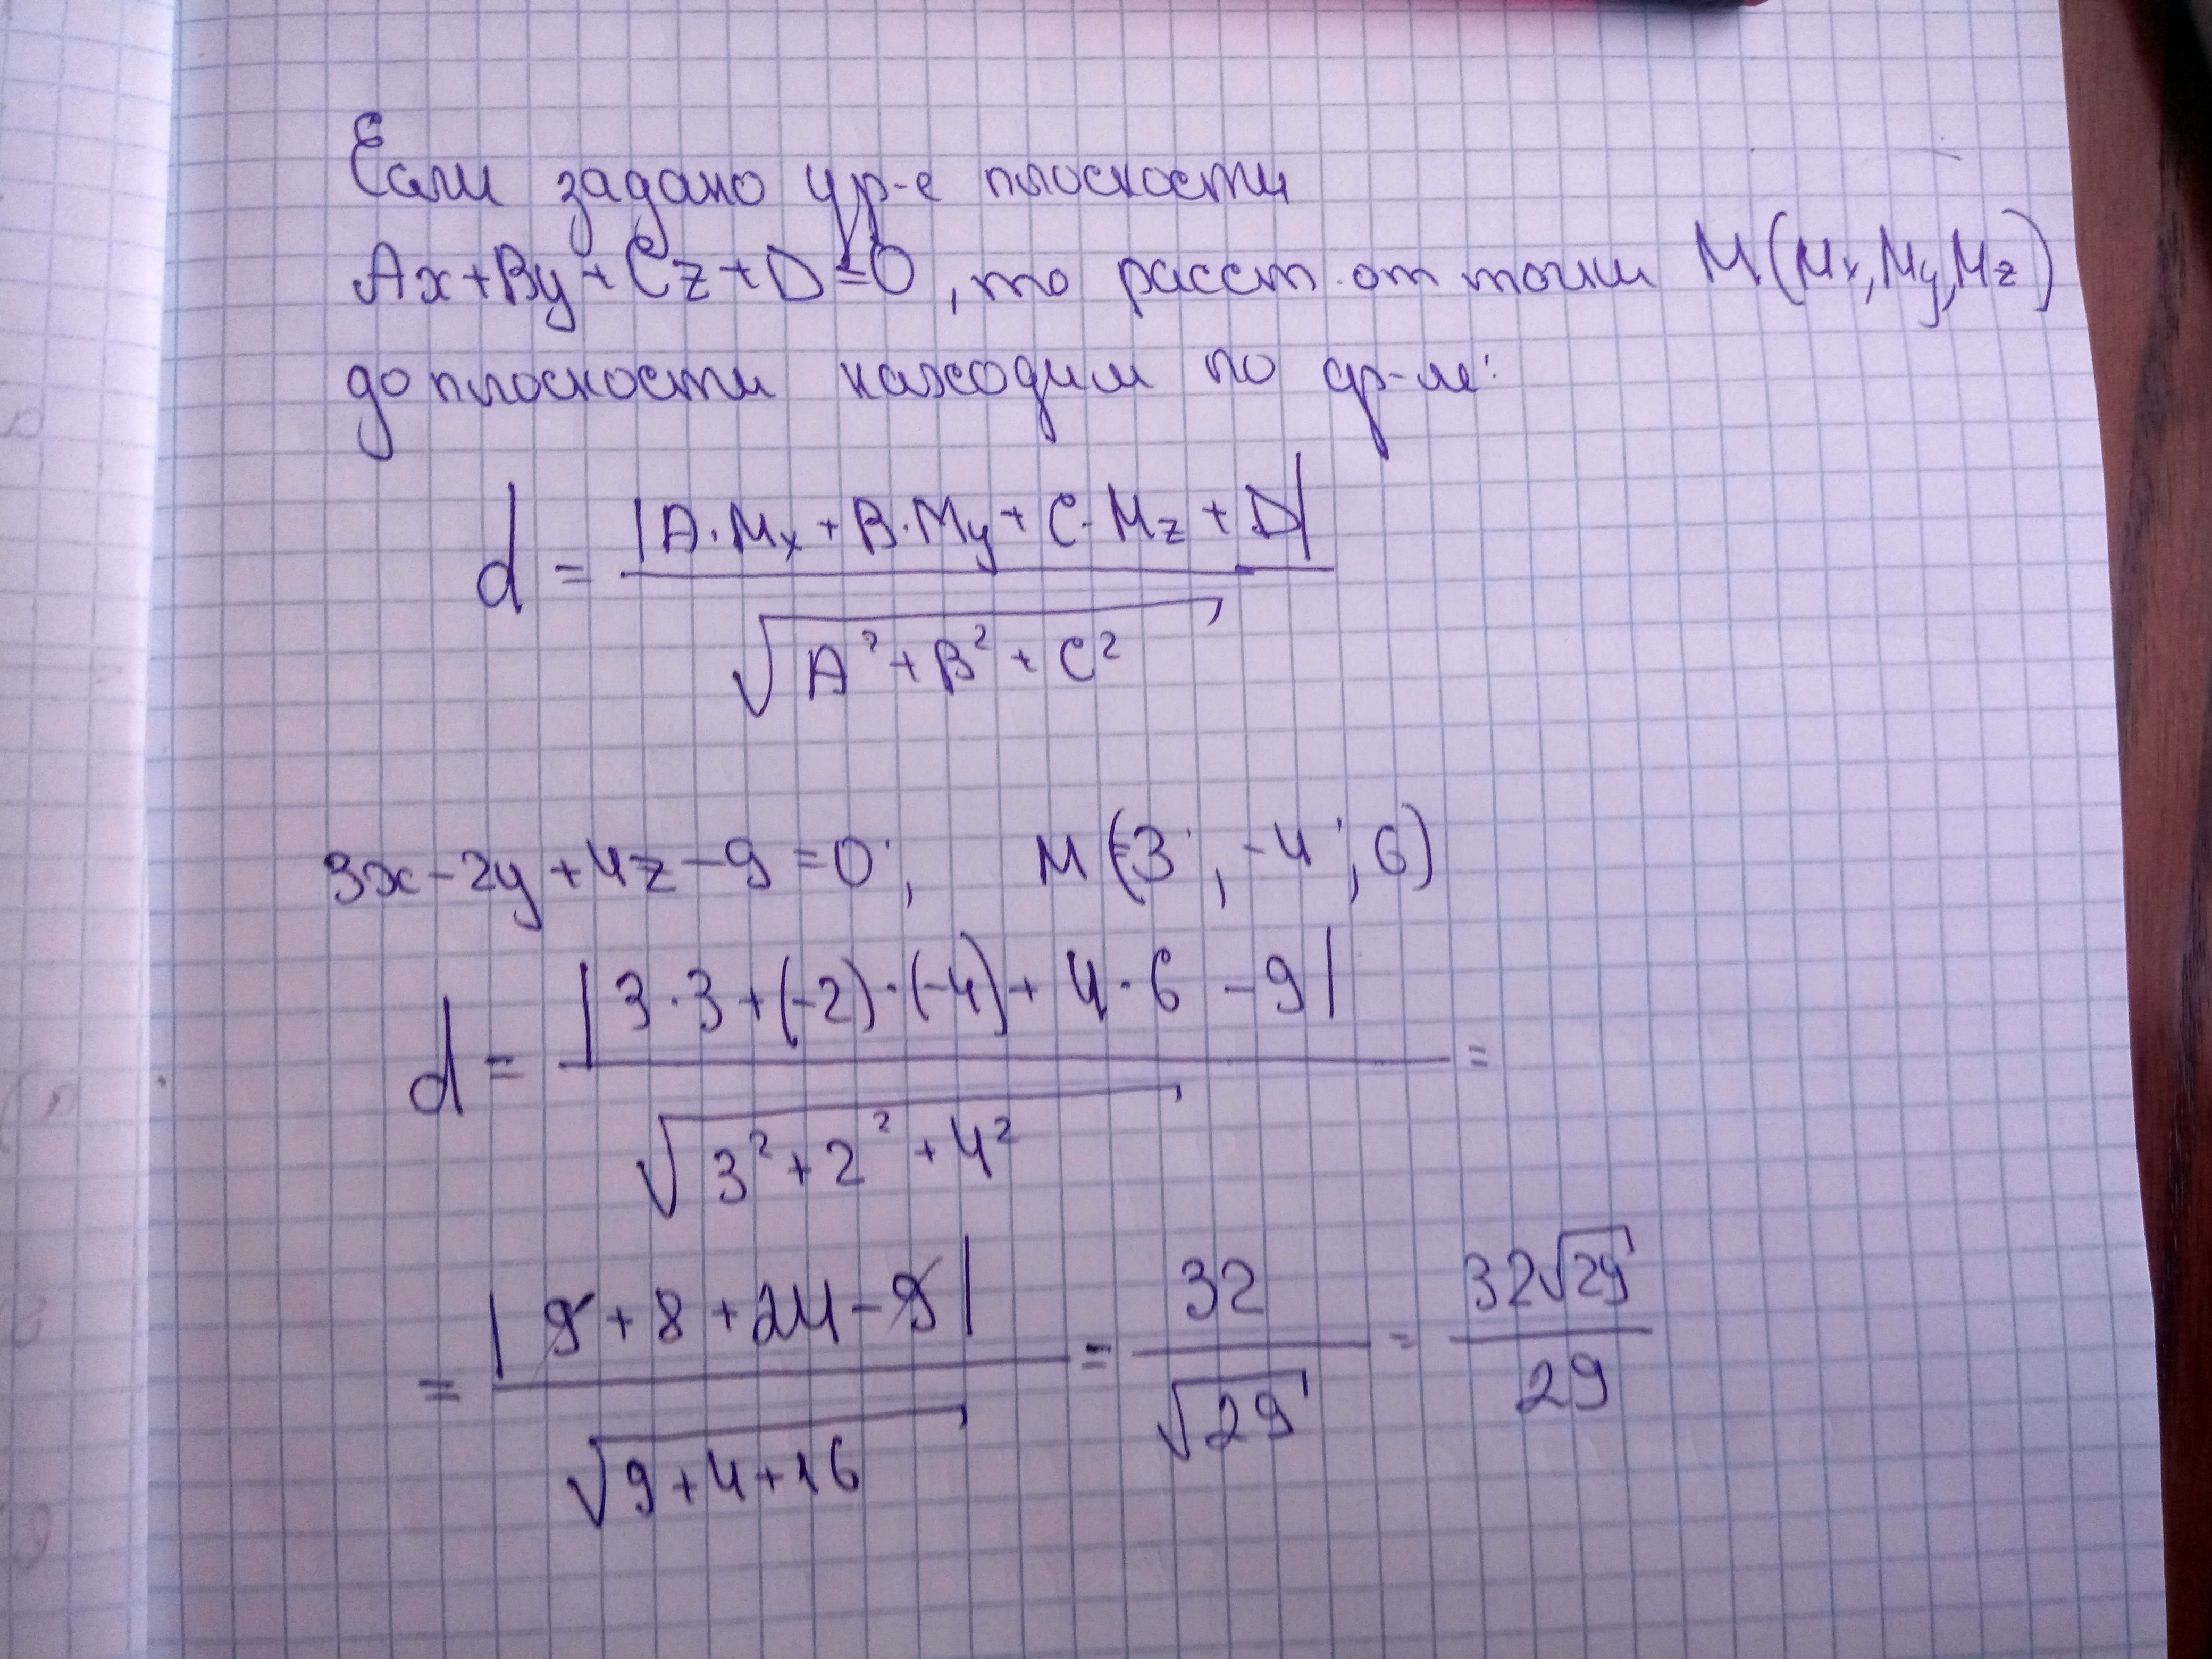 Если задано ур-е плоскости
Ax+By+Cz+D=0, то расст. от точки M(Mx,My,Mz)
до плоскости находим по ф-ле:
d = |A·Mx + B·My + C·Mz + D| / √(A² + B² + C²)
3x - 2y + 4z - 9 = 0; M(3; -4; 6)
d = |3·3 + (-2)·(-4) + 4·6 - 9| / √(3² + 2² + 4²) =
= |9 + 8 + 24 - 9| / √(9 + 4 + 16) = 32 / √29 = 32√29 / 29